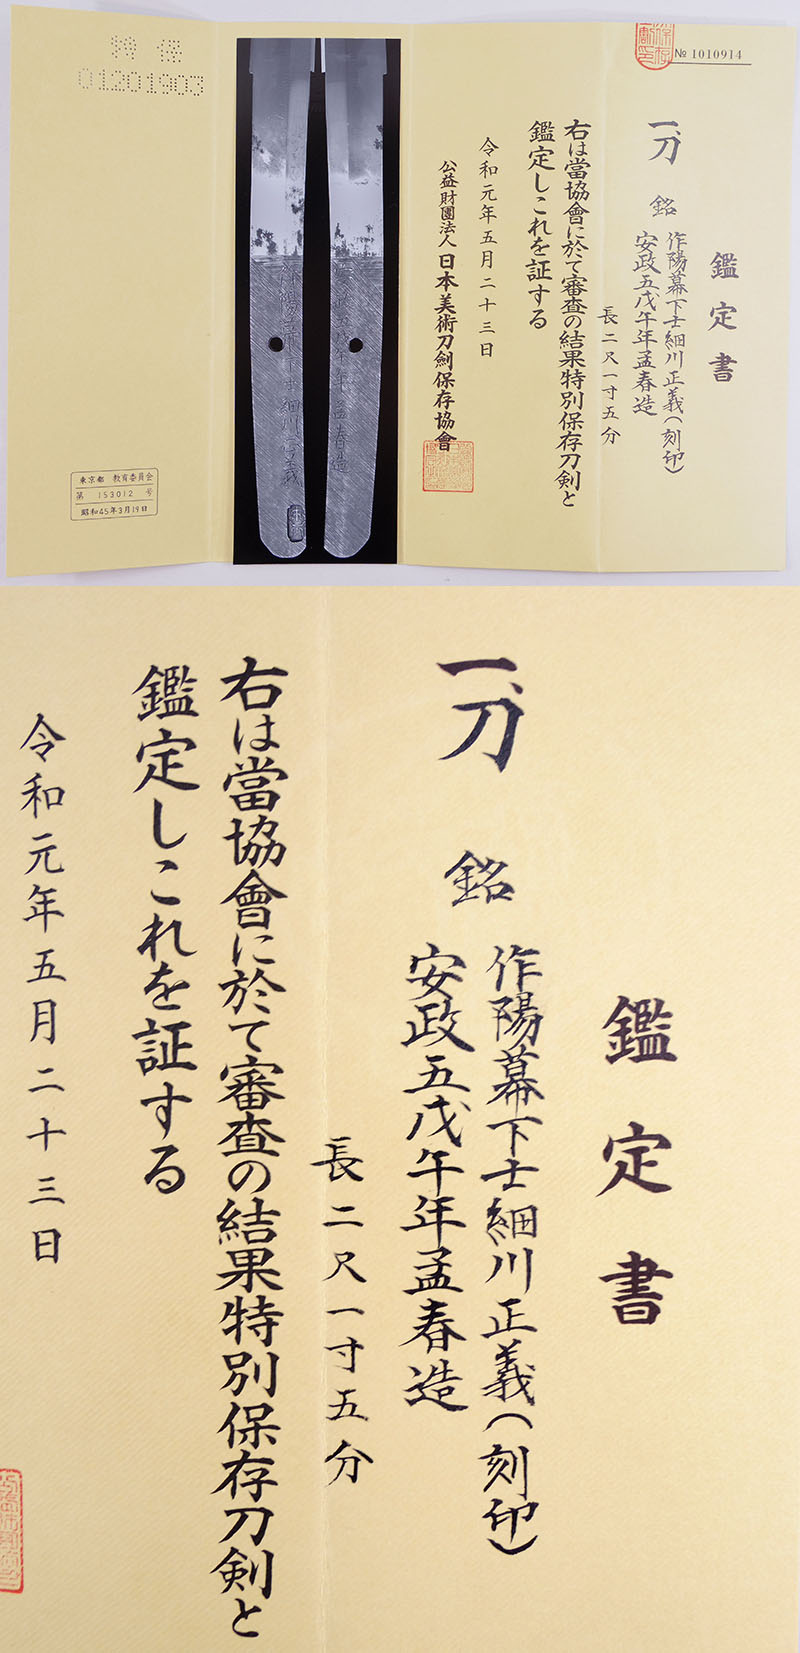 № 1010914
鑑定書
一、刀
銘
作陽幕下士細川正義（刻印）
安政五戊午年孟春造
長二尺一寸五分
右は當協會に於て審査の結果特別保存刀剣と
鑑定しこれを証する
令和元年五月二十三日
公益財團法人日本美術刀劍保存協會
特保
01201903
東京都 教育委員会
第 153012 号
昭和45年3月19日
鑑定書
一、刀
銘
作陽幕下士細川正義（刻印）
安政五戊午年孟春造
長二尺一寸五分
右は當協會に於て審査の結果特別保存刀剣と
鑑定しこれを証する
令和元年五月二十三日